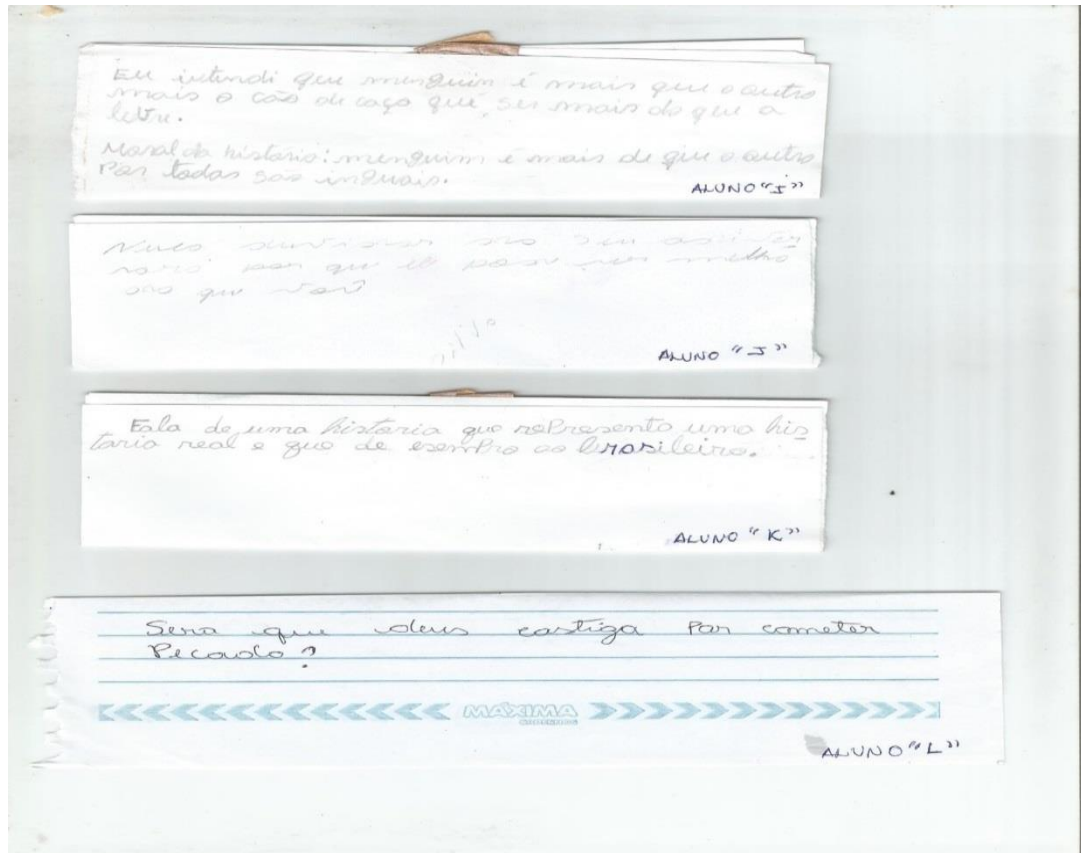 Eu intendi que menguim é mais que o outro
mais o cão de caça que ser mais do que a
lebre.
Moral da história: menguim é mais de que o outro
Por todos são inguais.
ALUNO "I"
Nuca duvidar do seu
por que ele pode ser melhó
do que você
ALUNO "J"
Fala de uma historia que represento uma his
toria real e que de exempro ao brasileiro.
ALUNO "K"
Sera que deus castiga Por cometer
Pecado?
MÁXIMA
CADERNOS
ALUNO "L"